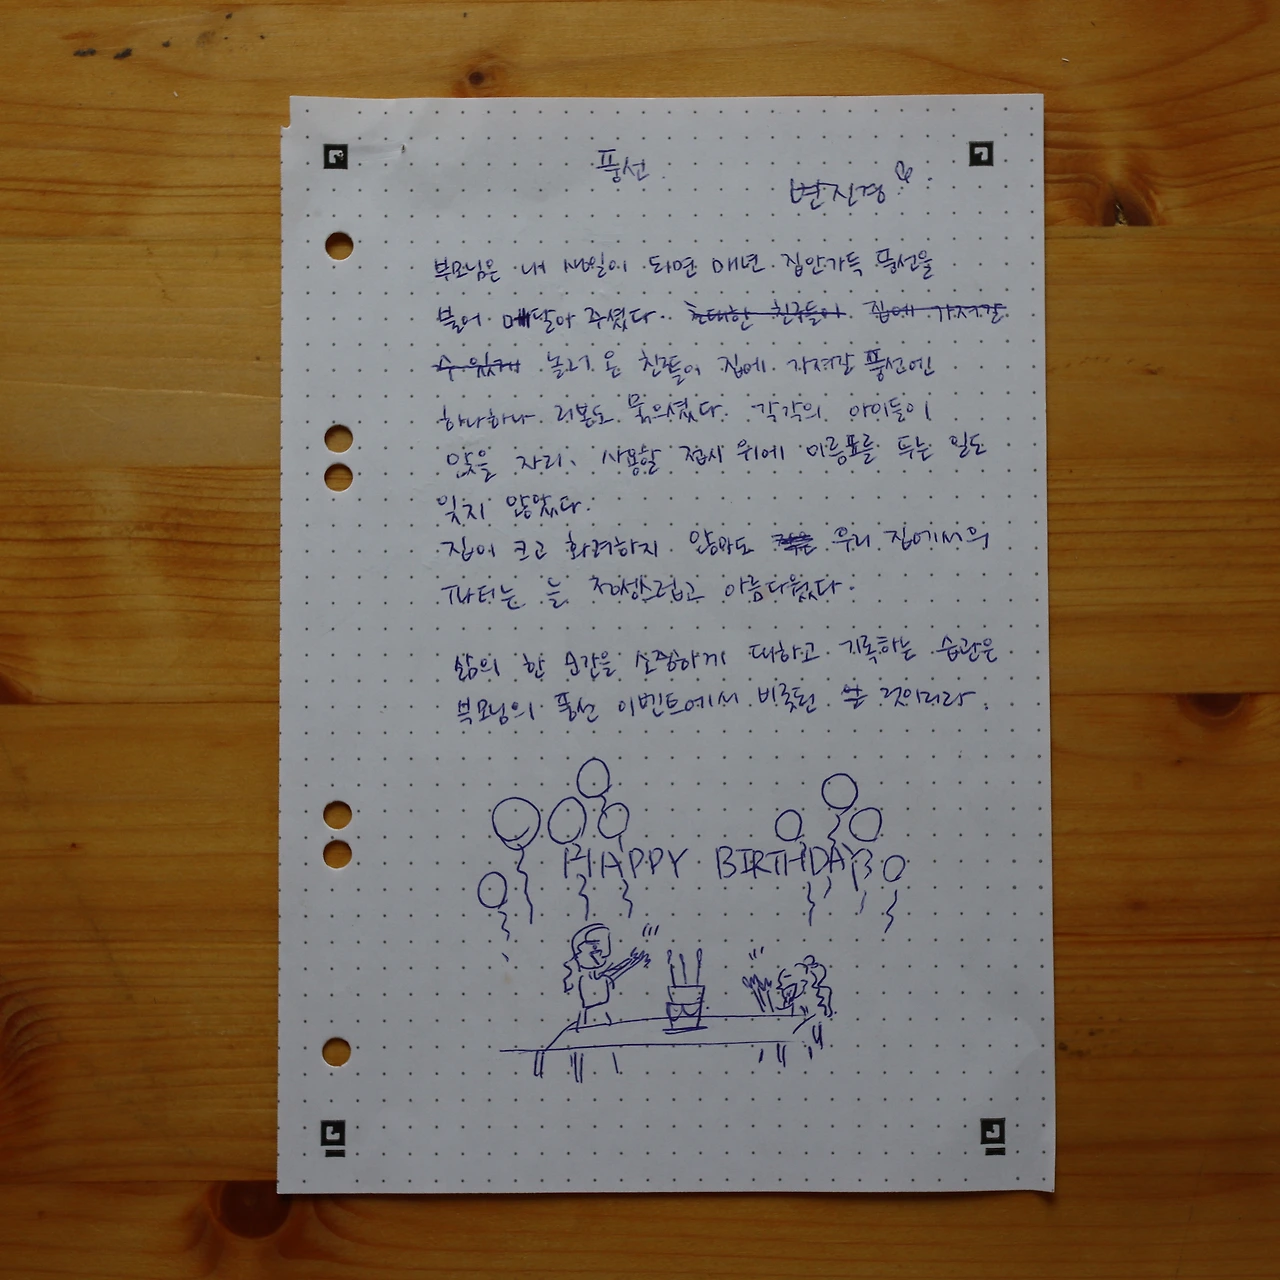 풍선
변진경
부모님은 내 생일이 되면 매년 집안가득 풍선을
불어 매달아 주셨다. 초대한 친구들이 집에 가져갈
수 있게 놀러 온 친구들이 집에 가져갈 풍선엔
하나하나 리본도 묶으셨다. 각각의 아이들이
앉을 자리, 사용할 접시 위에 이름표를 두는 일도
잊지 않았다.
집이 크고 화려하지 않아도 우리 집에서의
파티는 늘 정성스럽고 아름다웠다.
삶의 한 순간을 소중하게 대하고 기록하는 습관은
부모님의 풍선 이벤트에서 비롯된 것이리라.
HAPPY BIRTHDAY